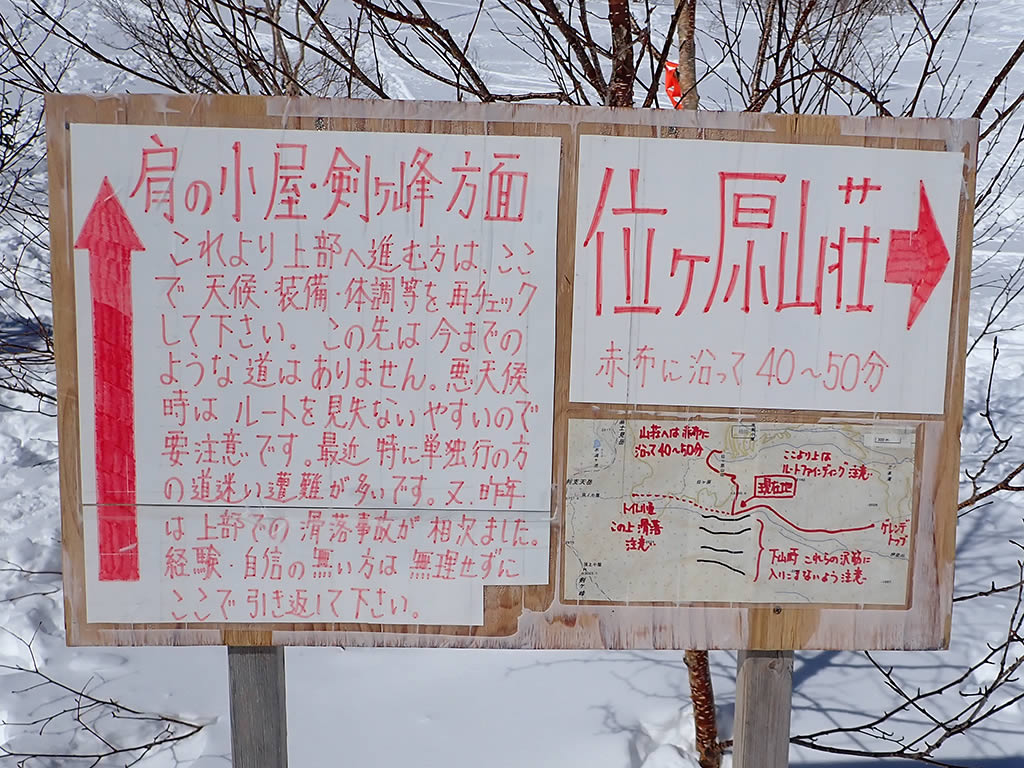 肩の小屋・剣ヶ峰方面
これより上部へ進む方は、ここ
で天候・装備・体調等を再チェック
して下さい。この先は今までの
ような道はありません。悪天候
時はルートを見失ないやすいので
要注意です。最近特に単独行の方
の道迷い遭難が多いです。又、昨年
は上部での滑落事故が相次ました。
経験・自信の無い方は無理せずに
ここで引き返して下さい。
位ヶ原山荘
赤布に沿って40〜50分
山荘へは赤布に
沿って40〜50分
ここより上は
ルートファインディング注意
現在地
トイレ小屋
この上滑落
注意
ゲレンデ
トップ
下山時これらの沢筋に
入りこまないよう注意